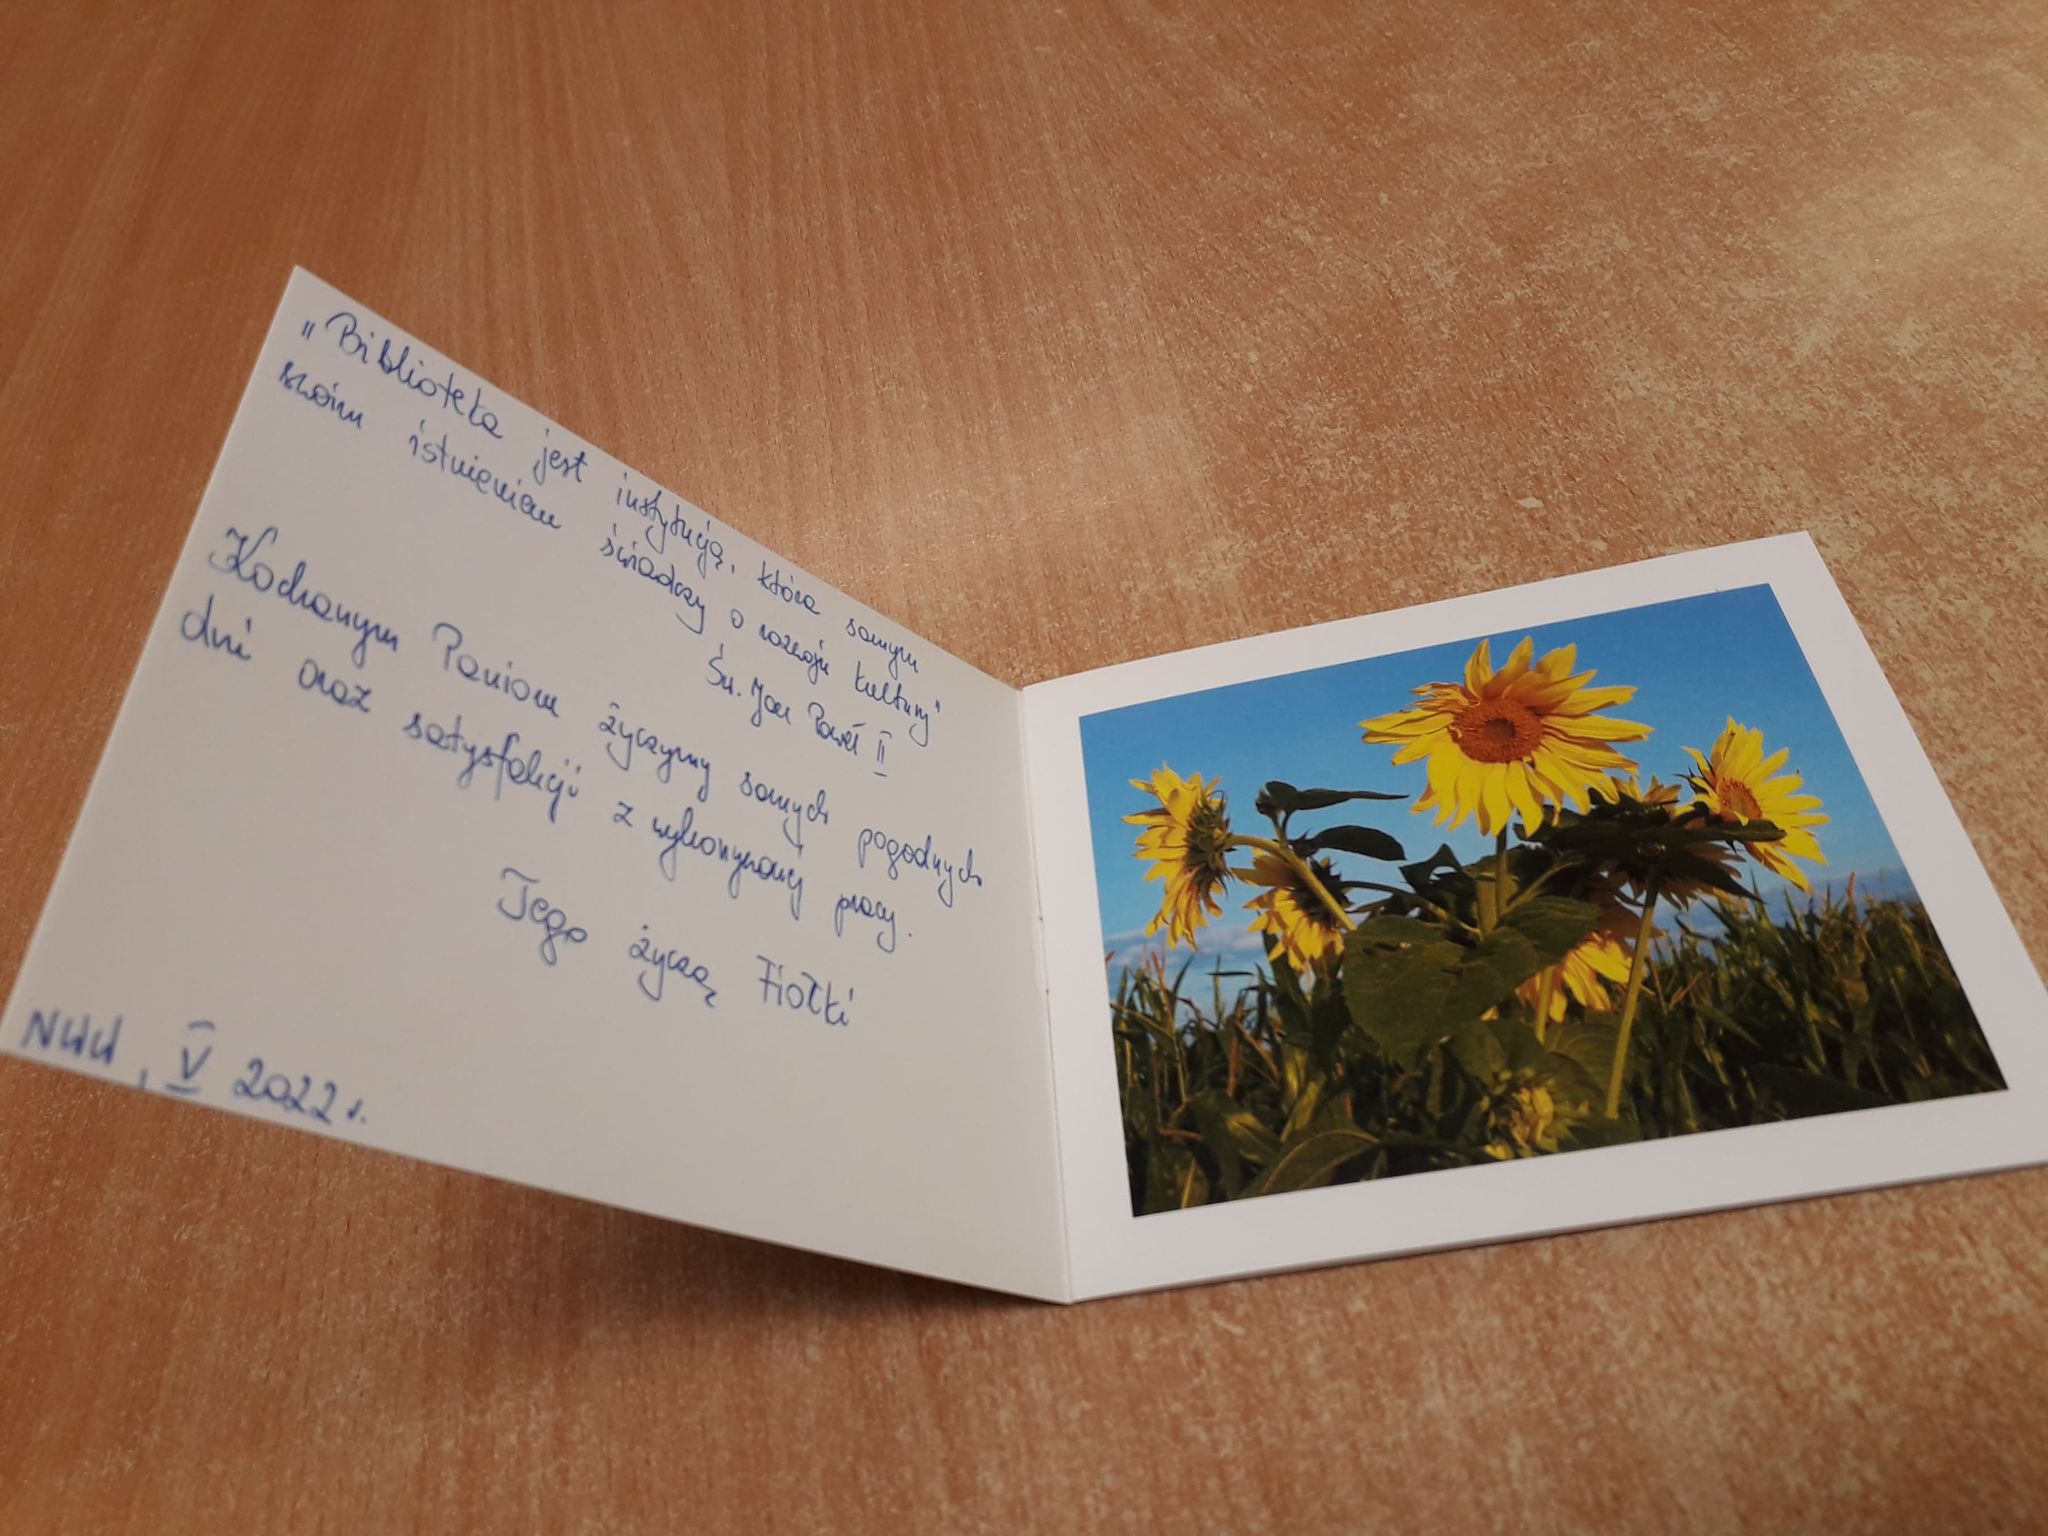 „Biblioteka jest instytucją, która samym
swoim istnieniem świadczy o rozwoju kultury"
Św. Jan Paweł II
Kochanym Paniom życzymy samych pogodnych
dni oraz satysfakcji z wykonywanej pracy.
Tego życzą Fiołki
, V 2022 r.